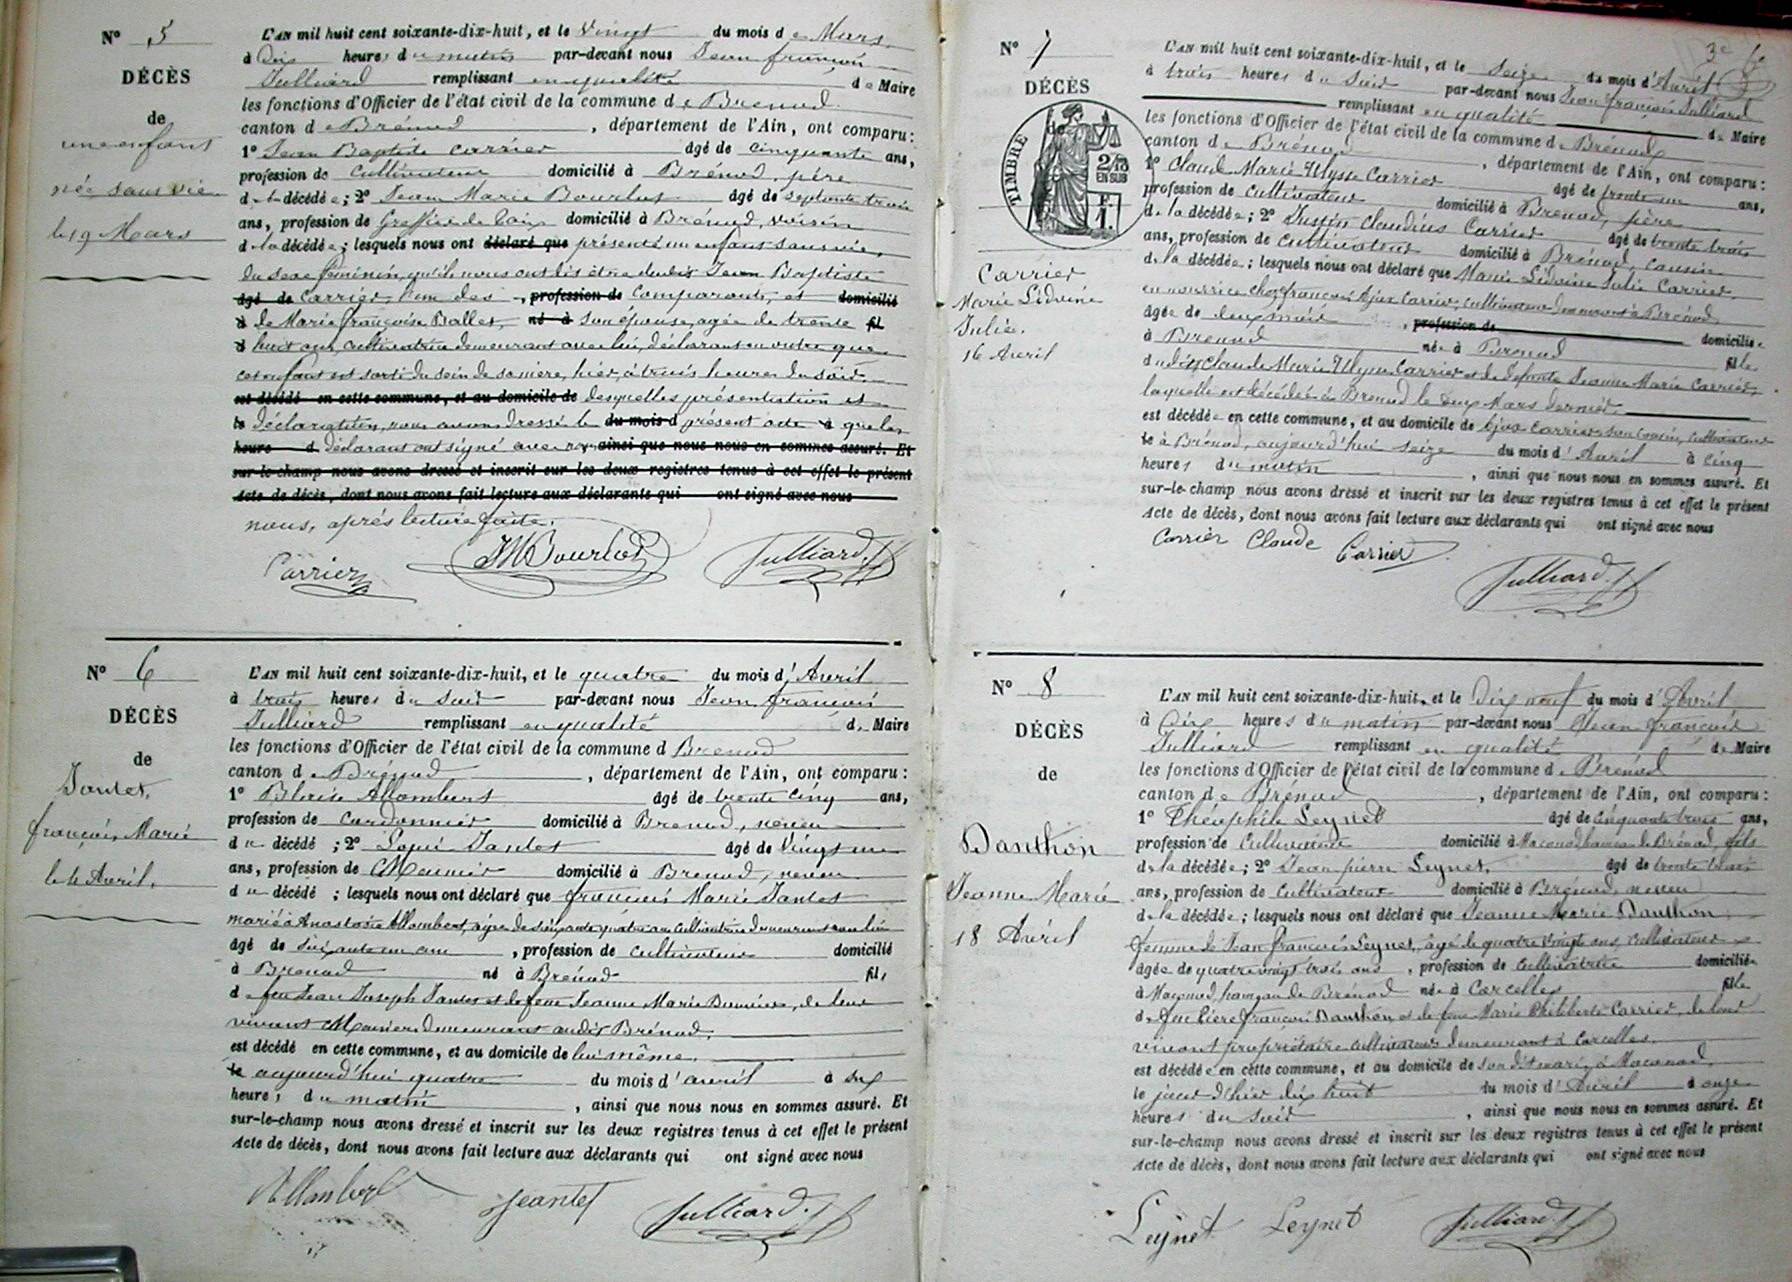 N° 5
DÉCÈS
de
une enfant
née sans vie
le 19 Mars
L'AN mil huit cent soixante-dix-huit, et le vingt du mois de Mars
à dix heures du matin par-devant nous Jean françois
Julliard remplissant en qualité de Maire
les fonctions d'Officier de l'état civil de la commune de Brénod
canton de Brénod, département de l'Ain, ont comparu:
1° Jean Baptiste Carrier âgé de cinquante ans,
profession de cultivateur domicilié à Brénod, père
de la décédée; 2° Jean Marie Bourlot âgé de septante trois
ans, profession de Greffier de paix domicilié à Brénod, voisin
de la décédée; lesquels nous ont déclaré que présenté un enfant sans vie,
du sexe féminin, qu'ils nous ont dit être du dit Jean Baptiste
âgé de Carrier, l'un des profession de comparants, et domicilié
à de Marie françoise Ballet, né à son épouse, agée de trente fil
d huit ans, cultivatrice demeurant avec lui, déclarant en outre que
cet enfant est sorti du sein de sa mère, hier, à trois heures du soir.
est décédé en cette commune, et au domicile de desquelles présentation et
le déclaration, nous avons dressé le du mois d présent acte à que les
heure d déclarants ont signé avec ainsi que nous nous en sommes assuré. Et
sur-le-champ nous avons dressé et inscrit sur les deux registres tenus à cet effet le présent
acte de décès, dont nous avons fait lecture aux déclarants qui ont signé avec nous
nous, après lecture faite.
Carrier JM Bourlot Julliard
N° 6
DÉCÈS
de
Jantet,
françois Marie
le 4 Avril.
L'AN mil huit cent soixante-dix-huit, et le quatre du mois d'Avril
à trois heures du soir par-devant nous Jean françois
Julliard remplissant en qualité de Maire
les fonctions d'Officier de l'état civil de la commune d Brenod
canton de Brénod, département de l'Ain, ont comparu:
1° Blaise Allombert âgé de trente cinq ans,
profession de cordonnier domicilié à Brenod, neveu
du décédé; 2° Jantet âgé de vingt un
ans, profession de Meunier domicilié à Brenod, neveu
du décédé; lesquels nous ont déclaré que françois Marie Jantet
marié à Anastasie Allombert, agée de soixante quatre ans cultivatrice demeurant avec lui
âgé de soixante un ans, profession de cultivateur domicilié
à Brenod né à Brénod fils
de feu Jean Joseph Jantet et de feue Jeanne Marie, de leur
vivant Meuniers demeurant audit Brénod.
est décédé en cette commune, et au domicile de lui même.
le aujourd'hui quatre du mois d'avril à six
heures du matin, ainsi que nous nous en sommes assuré. Et
sur-le-champ nous avons dressé et inscrit sur les deux registres tenus à cet effet le présent
acte de décès, dont nous avons fait lecture aux déclarants qui ont signé avec nous
Allombert Jeantet Julliard
N° 7
DÉCÈS
TIMBRE
2/10
EN SUS
F.
1.
Carrier
Marie Lidwine
Julie.
16 Avril
L'AN mil huit cent soixante-dix-huit, et le seize du mois d'Avril
à trois heures du soir par-devant nous Jean françois Julliard
remplissant en qualité de Maire
les fonctions d'Officier de l'état civil de la commune de Brénod
canton de Brénod, département de l'Ain, ont comparu:
1° Claude Marie Ulysse Carrier âgé de trente un ans,
profession de cultivateur domicilié à Brénod, père
de la décédée; 2° Justin Claudius Carrier âgé de trente trois
ans, profession de cultivateur domicilié à Brénod, cousin
de la décédée; lesquels nous ont déclaré que Marie Lidwine Julie Carrier,
en nourrice chez françois Ajax Carrier cultivateur demeurant à Brénod
âgée de deux mois, profession de
à Brenod née à Brenod domiciliée fille
du dit Claude Marie Ulysse Carrier et de defunte Jeanne Marie Carrier,
laquelle est décédée à Brenod le deux Mars dernier.
est décédée en cette commune, et au domicile de Ajax Carrier son cousin, cultivateur
le à Brénod, aujourd'hui seize du mois d'Avril à cinq
heures du matin, ainsi que nous nous en sommes assuré. Et
sur-le-champ nous avons dressé et inscrit sur les deux registres tenus à cet effet le présent
acte de décès, dont nous avons fait lecture aux déclarants qui ont signé avec nous
Carrier Claude Carrier
Julliard
N° 8
DÉCÈS
de
Danthon
Jeanne Marie
18 Avril
L'AN mil huit cent soixante-dix-huit, et le dix neuf du mois d'Avril
à dix heures du matin par-devant nous Jean françois
Julliard remplissant en qualité de Maire
les fonctions d'Officier de l'état civil de la commune de Brénod
canton de Brénod, département de l'Ain, ont comparu:
1° Théophile Leynet âgé de cinquante trois ans,
profession de cultivateur domicilié à Maconod hameau de Brénod, fils
de la décédée; 2° Jean pierre Leynet, âgé de trente trois
ans, profession de cultivateur domicilié à Brénod, neveu
de la décédée; lesquels nous ont déclaré que Jeanne Marie Danthon,
femme de Jean françois Leynet, âgé de quatre vingt ans, cultivateur
âgée de quatre vingt trois ans, profession de cultivatrice domiciliée
à Maconod, hameau de Brénod née à Corcelles fille
de feu Pierre françois Danthon, et de feue Marie Philiberte Carrier, de leur
vivant propriétaires cultivateurs demeurant à Corcelles.
est décédée en cette commune, et au domicile de son dit mari, à Maconod,
le jour d'hier dix huit du mois d'Avril à onze
heures du soir, ainsi que nous nous en sommes assuré. Et
sur-le-champ nous avons dressé et inscrit sur les deux registres tenus à cet effet le présent
acte de décès, dont nous avons fait lecture aux déclarants qui ont signé avec nous
Leynet Leynet Julliard